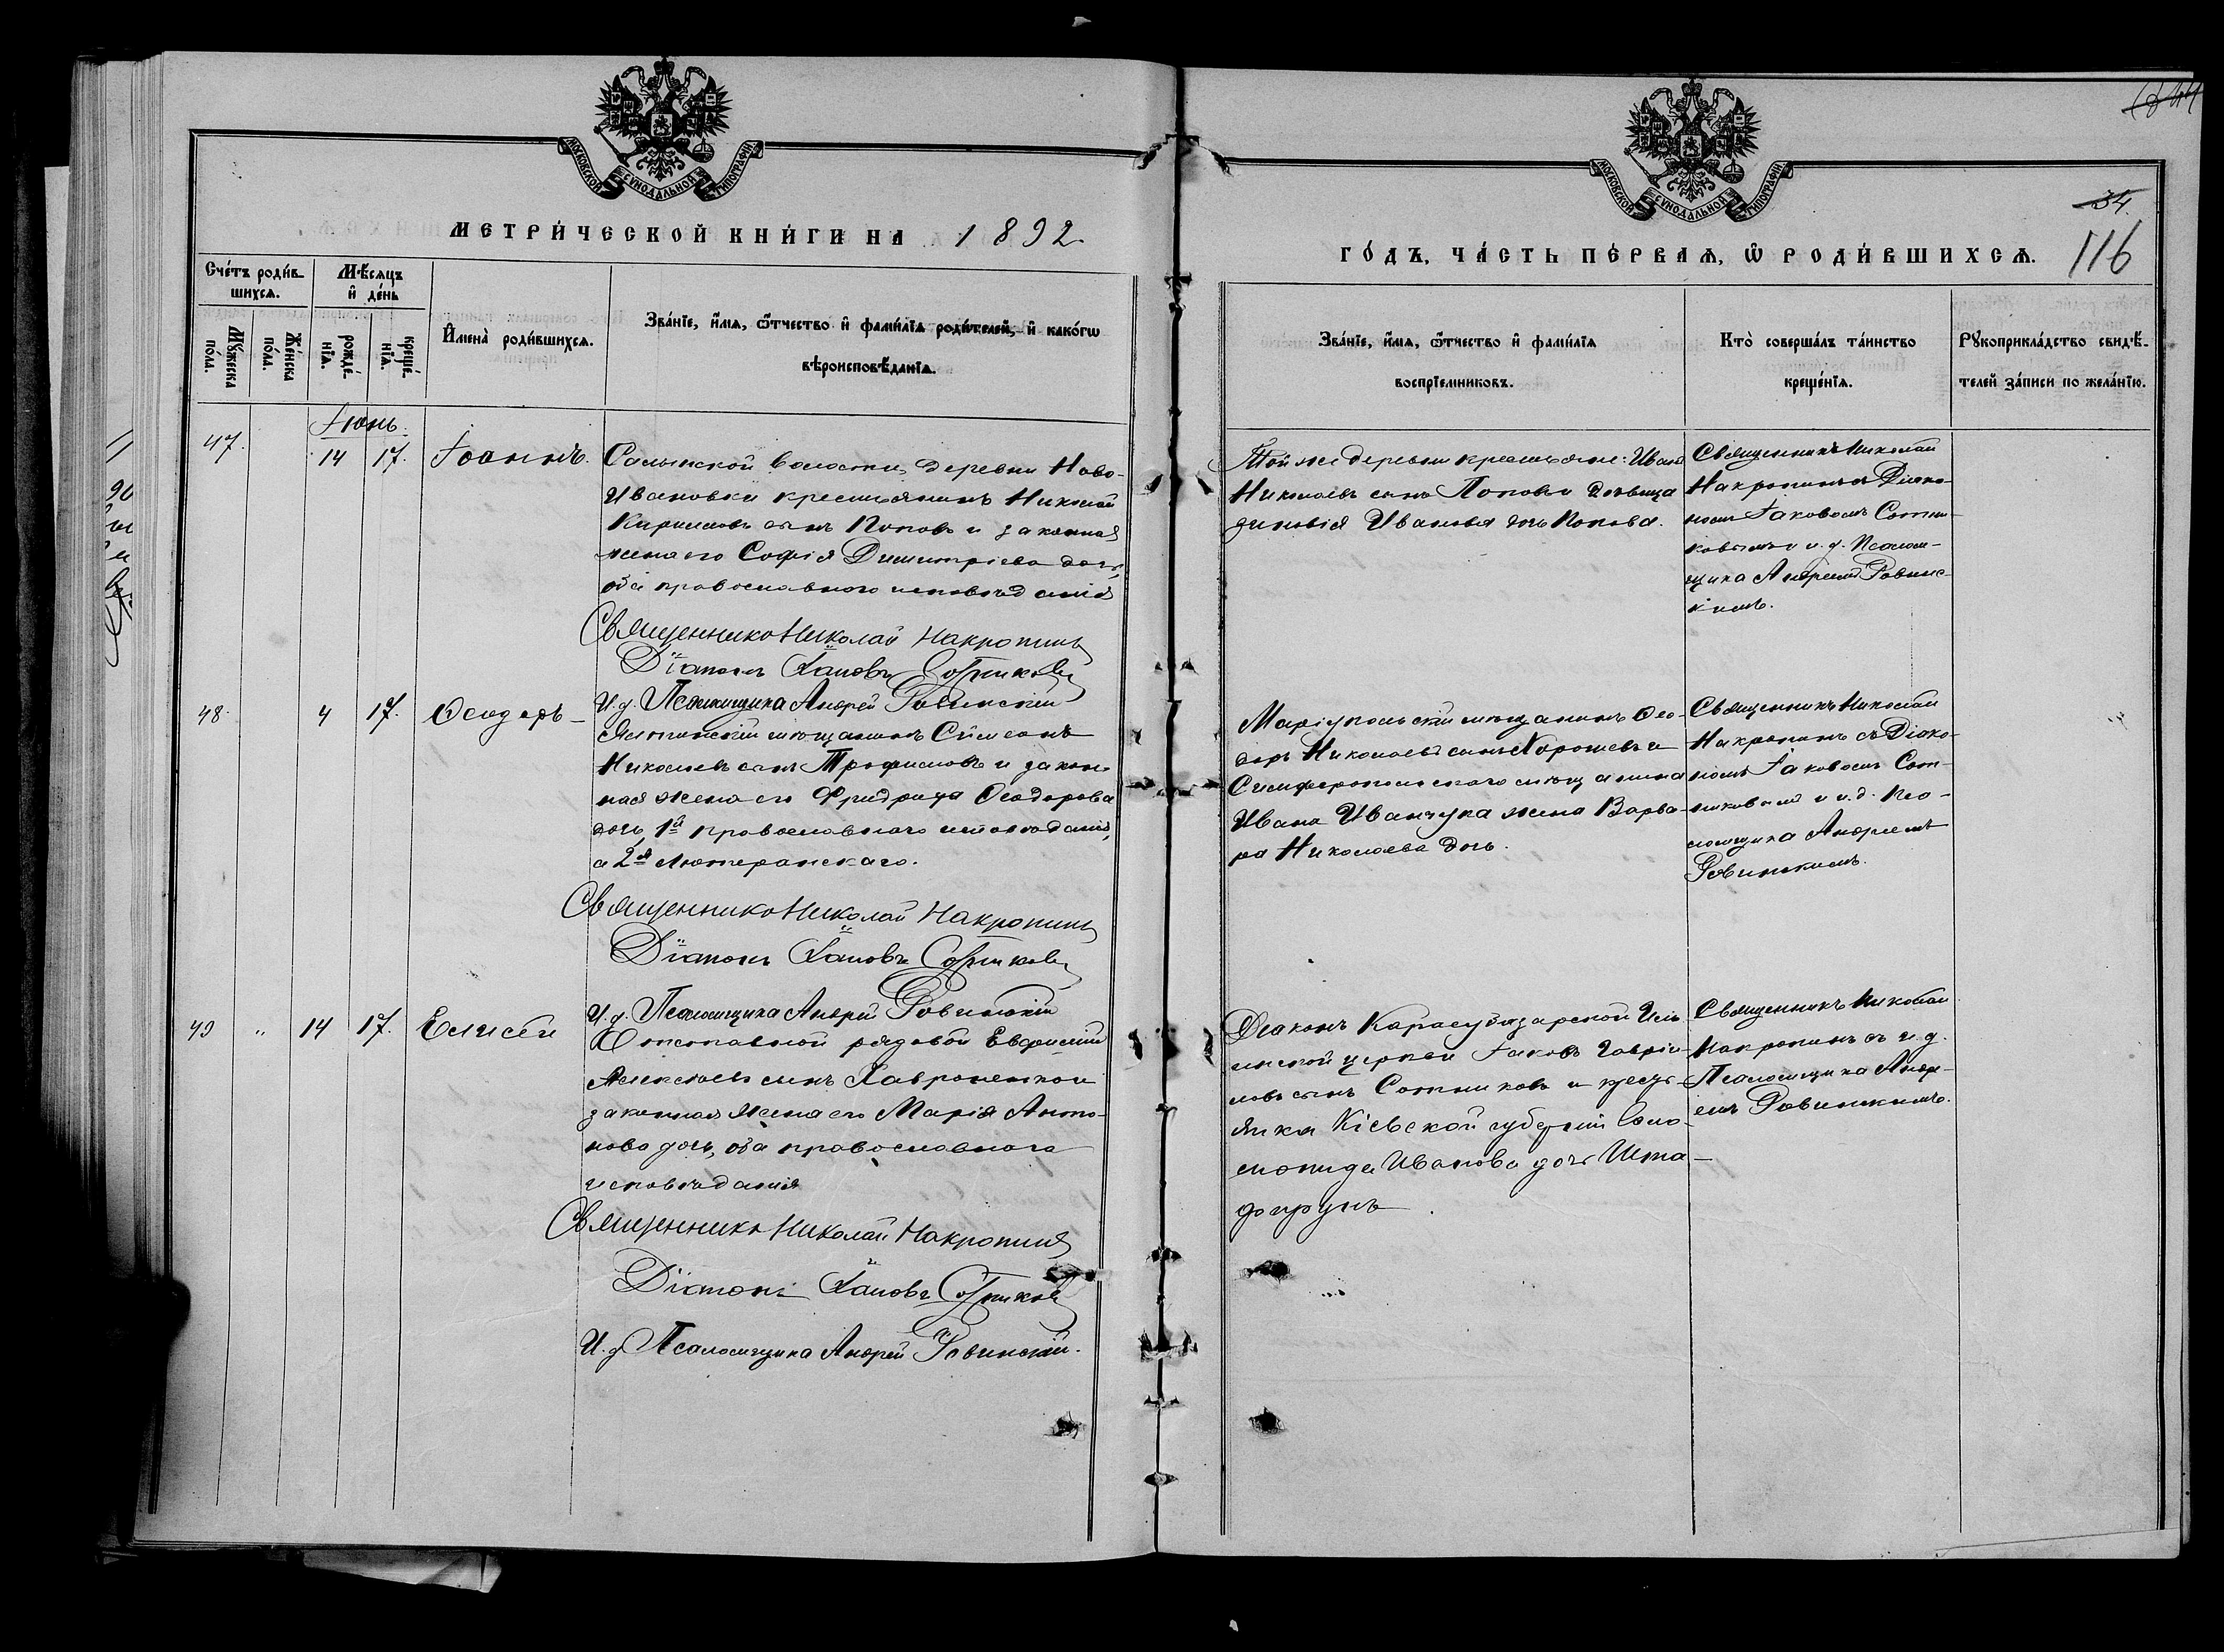 МОСКОВСКОЙ СУНОДАЛЬНОЙ ТИПОГРАФІИ
МЕТРИ́ЧЕСКОЙ КНИ́ГИ НА 1892
Сче́тъ роди́в-
шихсѧ.
Мѣ́сѧцъ
и҆ де́нь
Мꙋ́жеска
по́ла.
Же́нска
по́ла.
рожде́-
нїѧ.
креще́-
нїѧ.
И҆мена̀ роди́вшихсѧ.
Зва́нїе, и҆́мѧ, ѻ҆́тчество и҆ фами́лїѧ роди́телей, и҆ како́гѡ
вѣроисповѣ́данїѧ.
Іюнь.
47. 14 17. Іоаннъ.
Салынской волости, деревни Ново-
Ивановки крестьянинъ Николай
Кириловъ сынъ Поповъ и законная
жена его Софія Димитріева дочь,
оба православнаго исповѣданія
Священникъ Николай Накропинъ
Діаконъ Іаковъ Сотниковъ
И. д. Псаломщика Андрей Ровинскій
48. 4 17. Ѳеодоръ
Ялтинскій мѣщанинъ Симеонъ
Николаевъ сынъ Трофимовъ и закон-
ная жена его Фридриха Ѳеодорова
дочь, 1й православнаго исповѣданія,
а 2я лютеранскаго.
Священникъ Николай Накропинъ
Діаконъ Іаковъ Сотниковъ
И. д. Псаломщика Андрей Ровинскій
49 " 14 17. Елисей
Отставной рядовой Евфимій
Алексѣевъ сынъ
законная жена его Марія Анто-
нова дочь, оба православнаго
исповѣданія
Священникъ Николай Накропинъ
Діаконъ Іаковъ Сотниковъ
И. д. Псаломщика Андрей Ровинскій.
МОСКОВСКОЙ СУНОДАЛЬНОЙ ТИПОГРАФІИ
34.
116
ГО́ДЪ, ЧА́СТЬ ПЕ́РВАѦ, Ѽ РОДИ́ВШИХСѦ.
Зва́нїе, и҆́мѧ, ѻ҆́тчество и҆ фами́лїѧ
воспрїе́мниковъ.
Кто̀ соверша́лъ та́инство
креще́нїѧ.
Рꙋкоприкла́дство свидѣ́-
телей за́писи по жела́нїю.
Той же деревни крестьяне: Иванъ
Николаевъ сынъ Поповъ и дѣвица
Зиновія Иванова дочь Попова.
Священникъ Николай
Накропинъ съ Діако-
номъ Іаковомъ Сотни-
ковымъ и и. д. Псалом-
щика Андреемъ Ровинс-
кимъ.
Маріупольскій мѣщанинъ Ѳео-
доръ Николаевъ сынъ Хорошевъ и
Симферопольскаго мѣщанина
Ивана Иванчука жена Варва-
ра Николаева дочь.
Священникъ Николай
Накропинъ съ Діако-
номъ Іаковомъ Сот-
никовымъ и и. д. Пса-
ломщика Андреемъ
Ровинскимъ.
Діаконъ Карасубазарской
церкви Іаковъ Гаврі-
ловъ сынъ Сотниковъ и крестъ-
янка Кіевской губерніи Соло-
монида Иванова дочь
Священникъ Николай
Накропинъ съ и. д.
Псаломщика Андре-
емъ Ровинскимъ.